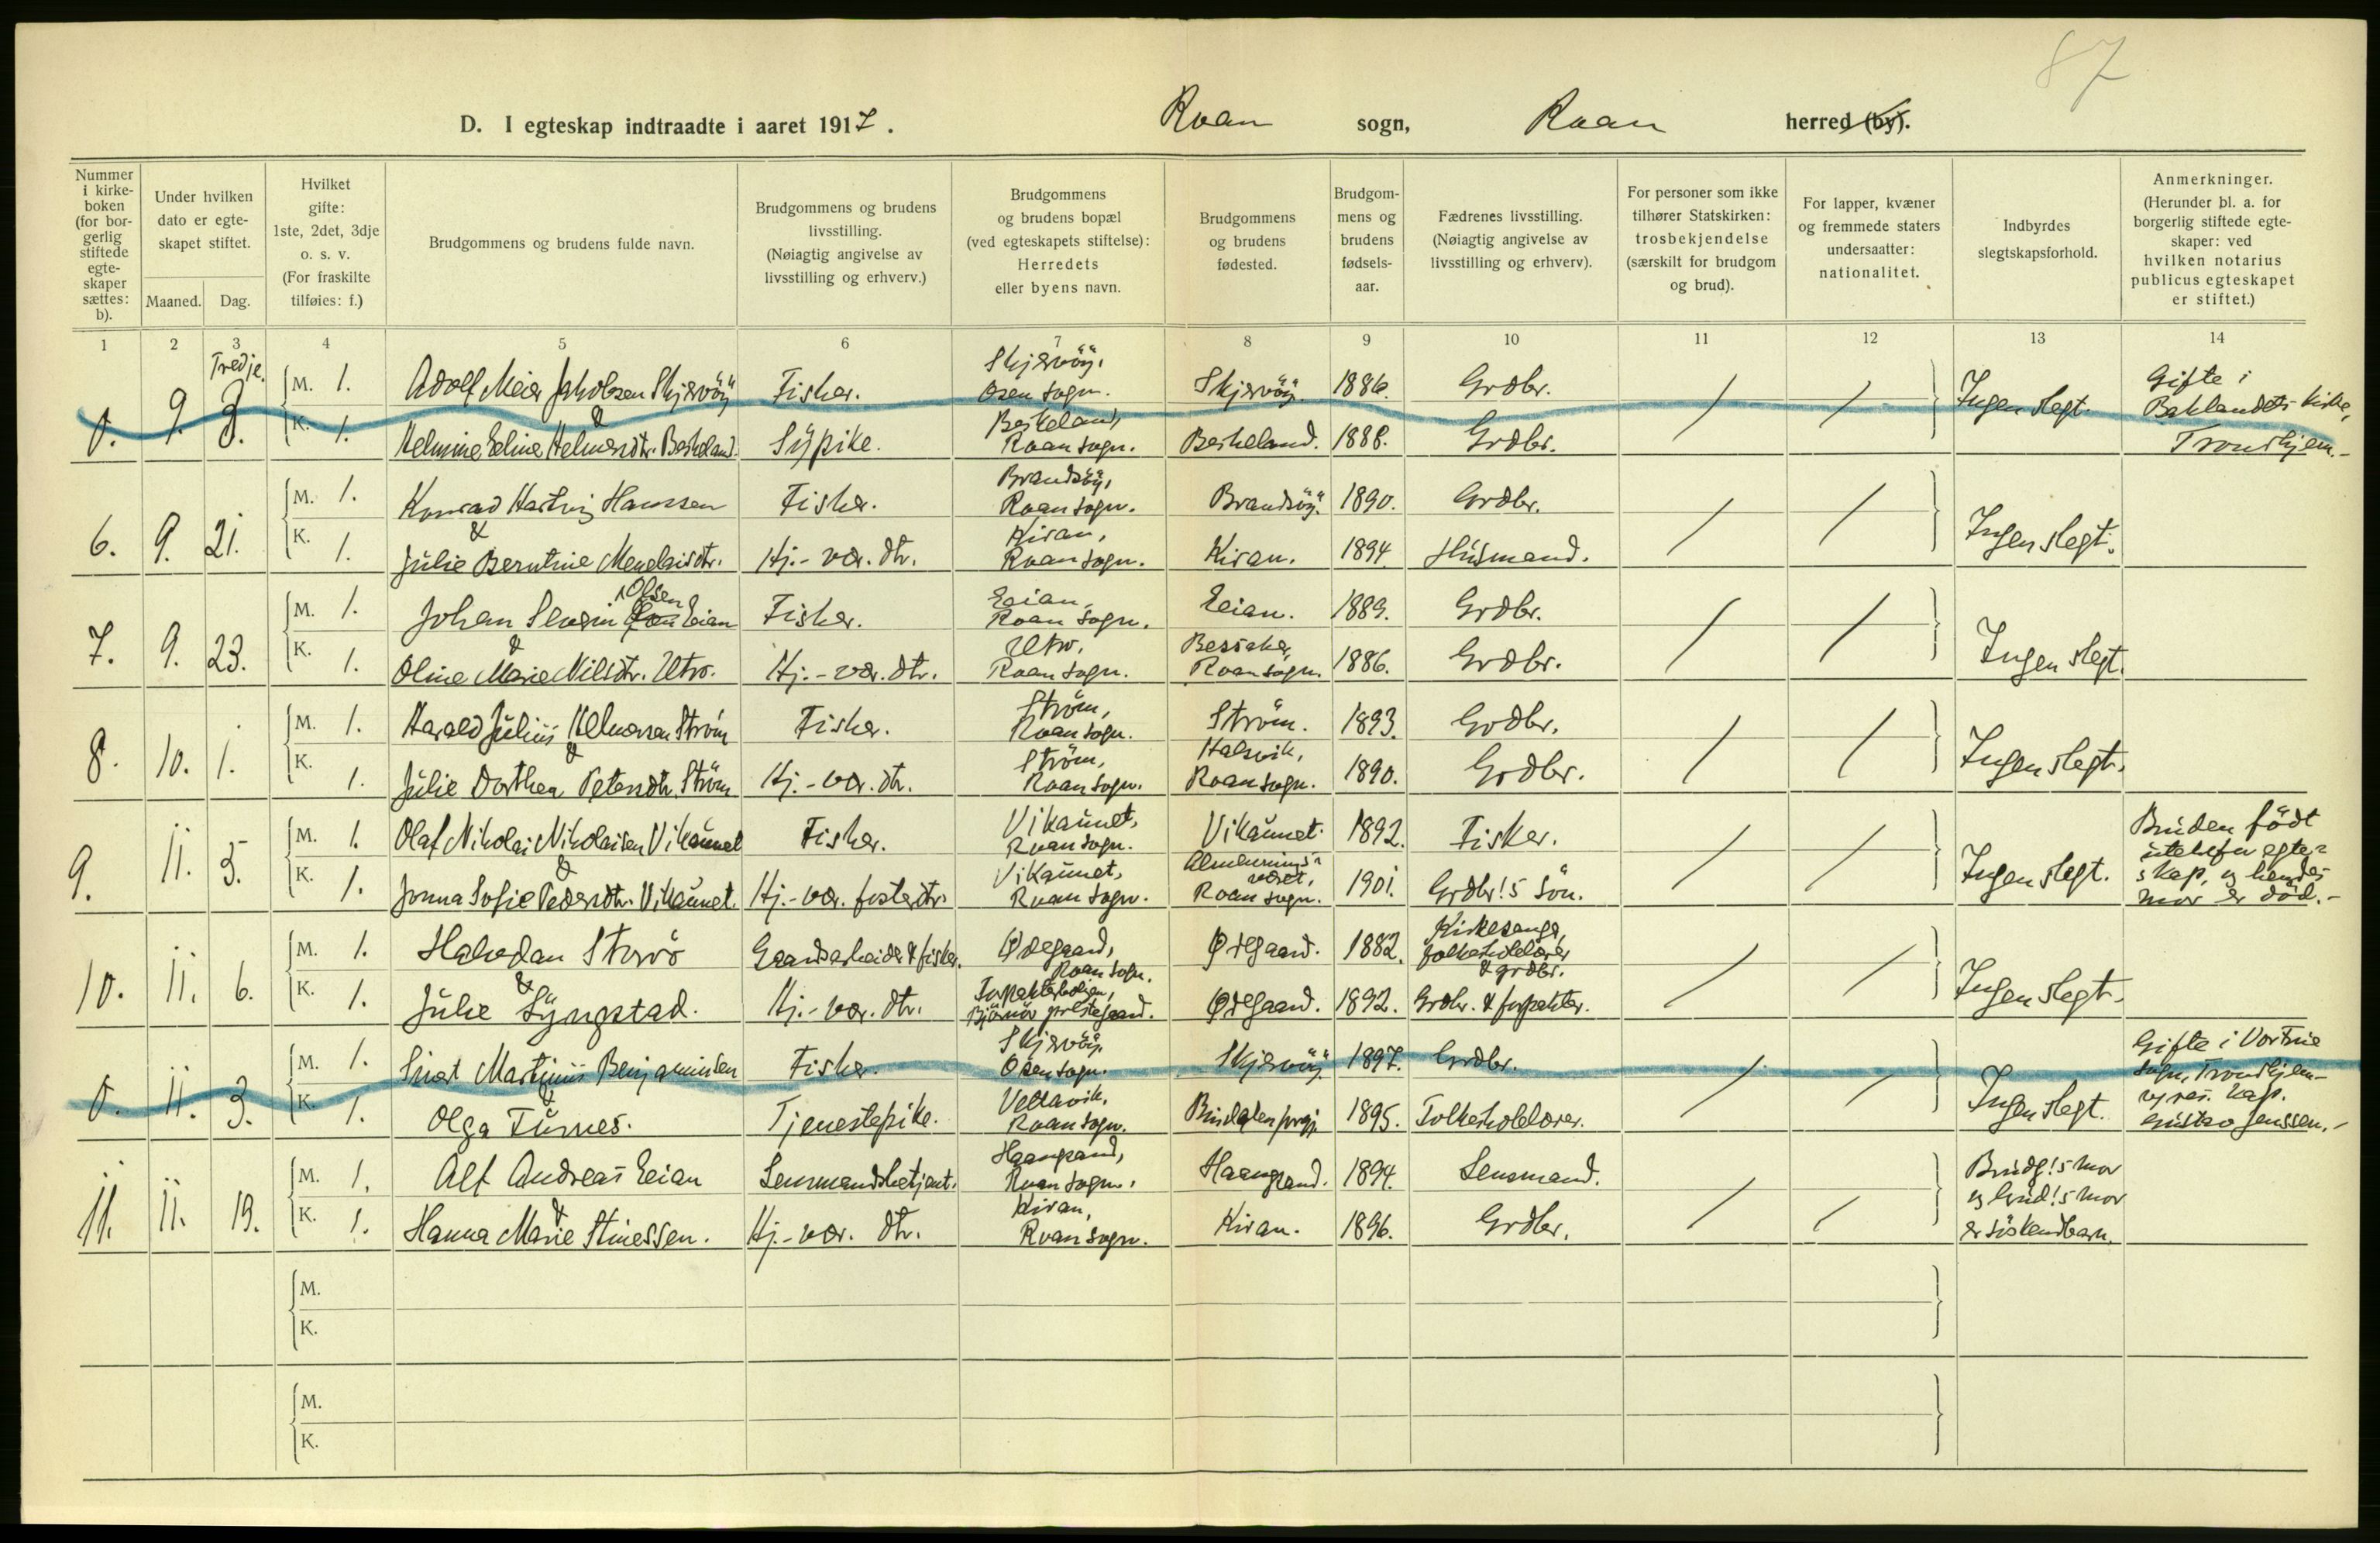 87
D. I egteskap indtraadte i aaret 1917. Roan sogn, Roan herred (by).
Nummer i kirke-boken (for bor-gerlig stiftede egte-skaper sættes: b).
Under hvilken dato er egte-skapet stiftet.
Maaned. Dag.
Hvilket gifte: 1ste, 2det, 3dje o. s. v. (For fraskilte tilføies: f.)
Brudgommens og brudens fulde navn.
Brudgommens og brudens livsstilling. (Nøiagtig angivelse av livsstilling og erhverv.)
Brudgommens og brudens bopæl (ved egteskapets stiftelse): Herredets eller byens navn.
Brudgommens og brudens fødested.
Brudgom-mens og brudens fødsels-aar.
Fædrenes livsstilling. (Nøiagtig angivelse av livsstilling og erhverv).
For personer som ikke tilhører Statskirken: trosbekjendelse (særskilt for brudgom og brud).
For lapper, kvæner og fremmede staters undersaatter: nationalitet.
Indbyrdes slegtskapsforhold.
Anmerkninger. (Herunder bl. a. for borgerlig stiftede egte-skaper: ved hvilken notarius publicus egteskapet er stiftet.)
1 2 3 4 5 6 7 8 9 10 11 12 13 14
0. 9. 3. Tredje.
M. 1. Adolf Meier Jakobsen Skjervöÿ Fisker. Skjervöÿ, Osen sogn. Skjervöÿ. 1886. Grdbr. / / Ingen slegt. Gifte i Baklandets kirke, Trondhjem.-
&
K. 1. Helmine Eeline Helmersdtr. Beskeland. Sÿpike. Beskeland, Roan sogn. Beskeland. 1888. Grdbr.
6. 9. 21.
M. 1. Konrad Hartvig Hanssen Fisker. Brandsöÿ, Roan sogn. Brandsöÿ. 1890. Grdbr. / / Ingen slegt.
&
K. 1. Julie Berntine Menelaisdtr. Hj.-vær. dtr. Kiran, Roan sogn. Kiran. 1894. Husmand.
7. 9. 23.
M. 1. Johan Severin Olsen Eeian Fisker. Eeian, Roan sogn. Eeian. 1889. Grdbr. / / Ingen slegt.
&
K. 1. Oline Marie Nilsdtr. Utro. Hj.-vær. dtr. Utro, Roan sogn. Bessaker, Roan sogn. 1886. Grdbr.
8. 10. 1.
M. 1. Harald Julius Helmersen Ström Fisker. Ström, Roan sogn. Ström. 1893. Grdbr. / / Ingen slegt.
&
K. 1. Julie Dorthea Petersdtr. Ström Hj.-vær. dtr. Ström, Roan sogn. Halsvik, Roan sogn. 1890. Grdbr.
9. 11. 5.
M. 1. Olaf Nikolai Nikolaisen Vikaunet Fisker. Vikaunet, Roan sogn. Vikaunet. 1892. Fisker. / / Ingen slegt. Bruden födt utenfor egte= skap, og hendes mor er död.-
&
K. 1. Jonna Sofie Pedersdtr. Vikaunet. Hj.-vær. fosterdtr. Vikaunet, Roan sogn. Almennings= været, Roan sogn. 1901. Grdbr!s sön.
10. 11. 6.
M. 1. Halvdan Storö Gaardsarbeider & fisker. Ødegaard, Roan sogn. Ødegaard. 1882. Kirkesanger, folkeskolelærer & grdbr. / / Ingen slegt.
&
K. 1. Julie Lÿngstad. Hj.-vær. dtr. Inspektörboligen, Björnör prestegaard. Ødegaard. 1892. Grdbr. & inspektör.
0. 11. 3.
M. 1. Martinus Benjaminsen Fisker. Skjervöÿ, Osen sogn. Skjervöÿ. 1897. Grdbr. / / Ingen slegt. Gifte i Vorfrue sogn, Trondhjem- res. kap. Gustav Jenssen.-
&
K. 1. Olga Furnes. Tjenestepike. Vettavik, Roan sogn. Bindalen prgj. 1895. Folkeskolelærer.
11. 11. 19.
M. 1. Alf Andreas Eeian Lensmandsbetjent. Haangrand, Roan sogn. Haangrand. 1894. Lensmand. / / Brudg!s mor og brud!s mor er söskendbarn.
&
K. 1. Hanna Marie Stinessen. Hj.-vær. dtr. Kiran, Roan sogn. Kiran. 1896. Grdbr.
M.
K.
M.
K.